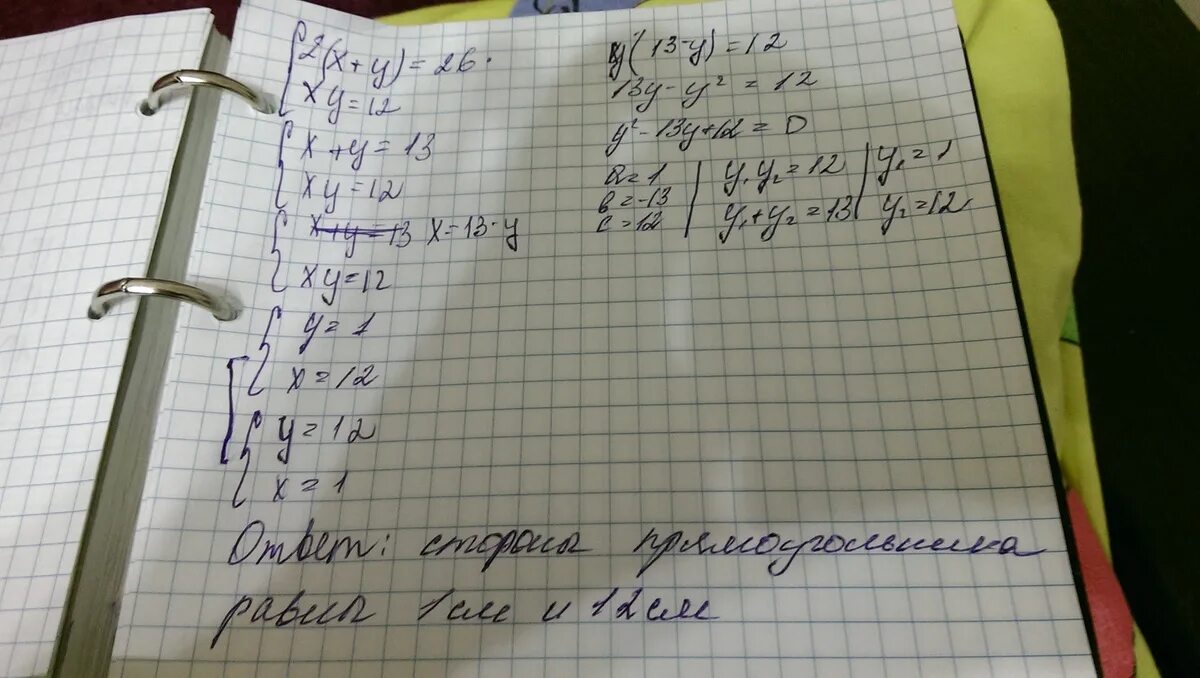 2(x+y)=26.
xy=12
x+y=13
xy=12
x+y=13 x=13-y
xy=12
y=1
x=12
y=12
x=1
y(13-y)=12
13y-y²=12
y²-13y+12=0
a=1
b=-13
c=12
y₁y₂=12
y₁+y₂=13
y₁=1
y₂=12
Ответ: стороны прямоугольника
равны 1см и 12см